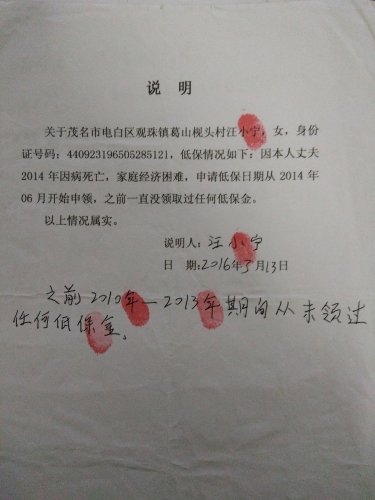 说 明
关于茂名市电白区观珠镇葛山枧头村汪小宁，女，身份
证号码：440923196505285121，低保情况如下：因本人丈夫
2014年因病死亡，家庭经济困难，申请低保日期从2014年
06月开始申领，之前一直没领取过任何低保金。
以上情况属实。
说明人：汪小宁
日 期：2016年5月13日
之前2010年—2013年期间从未领过
任何低保金。